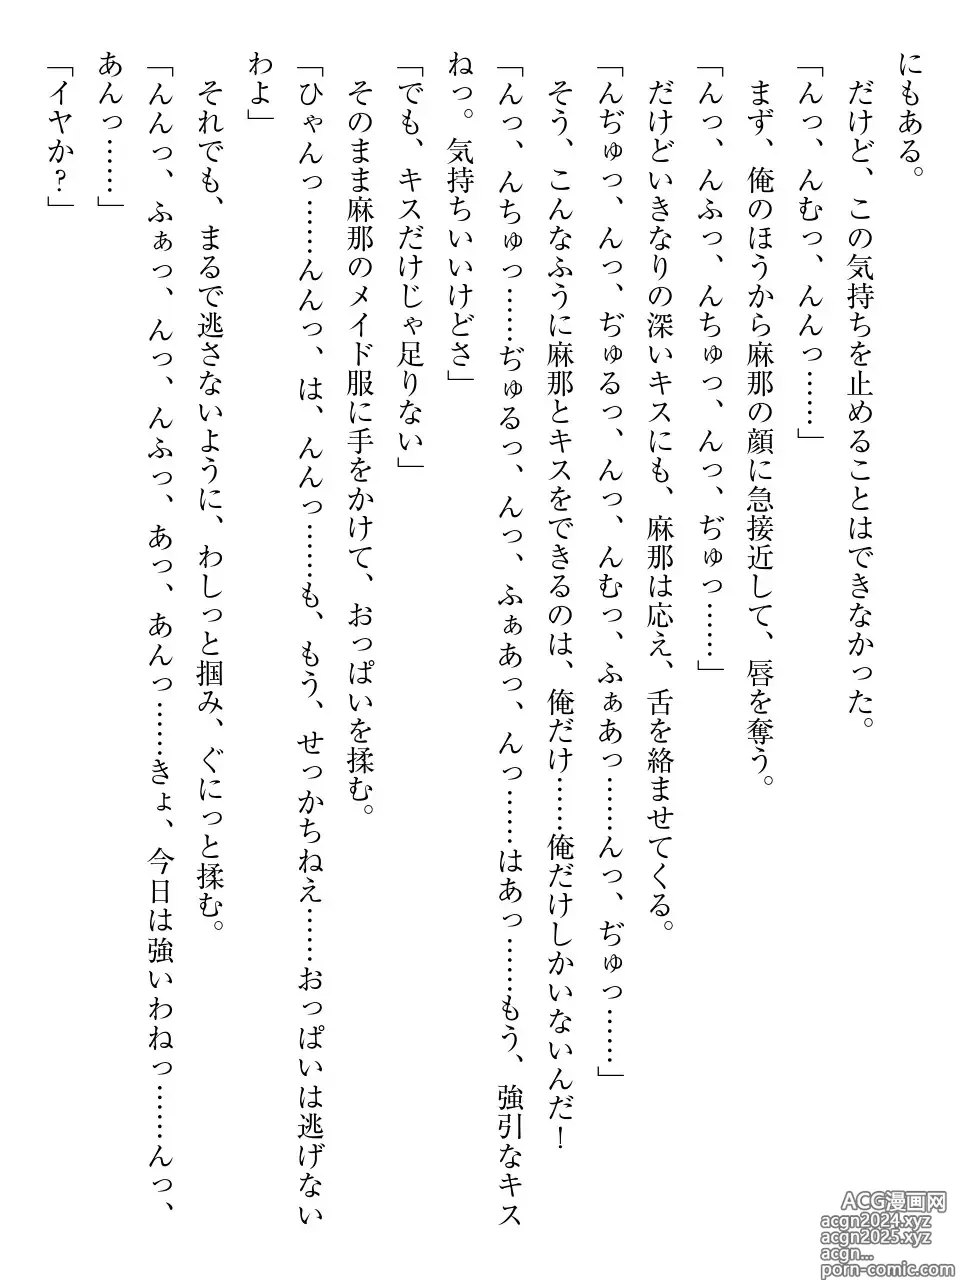 にもある。
だけど、この気持ちを止めることはできなかった。
「んっ、んむっ、んんっ……」
まず、俺のほうから麻那の顔に急接近して、唇を奪う。
「んっ、んふっ、んちゅっ、んっ、ぢゅっ……」
だけどいきなりの深いキスにも、麻那は応え、舌を絡ませてくる。
「んぢゅっ、んっ、ぢゅるっ、んっ、んむっ、ふぁあっ……んっ、ぢゅっ……」
そう、こんなふうに麻那とキスをできるのは、俺だけ……俺だけしかいないんだ！
「んっ、んちゅっ……ぢゅるっ、んっ、ふぁあっ、んっ……はあっ……もう、強引なキス
ねっ。気持ちいいけどさ」
「でも、キスだけじゃ足りない」
そのまま麻那のメイド服に手をかけて、おっぱいを揉む。
「ひゃんっ……んんっ、は、んんっ……も、もう、せっかちねえ……おっぱいは逃げない
わよ」
それでも、まるで逃さないように、わしっと掴み、ぐにっと揉む。
「んんっ、ふぁっ、んっ、んふっ、あっ、あんっ……きょ、今日は強いわねっ……んっ、
あんっ……」
「イヤか？」
ACG漫画网
acgn2024.xyz
acgn2025.xyz
acgn...
porn-comic.com